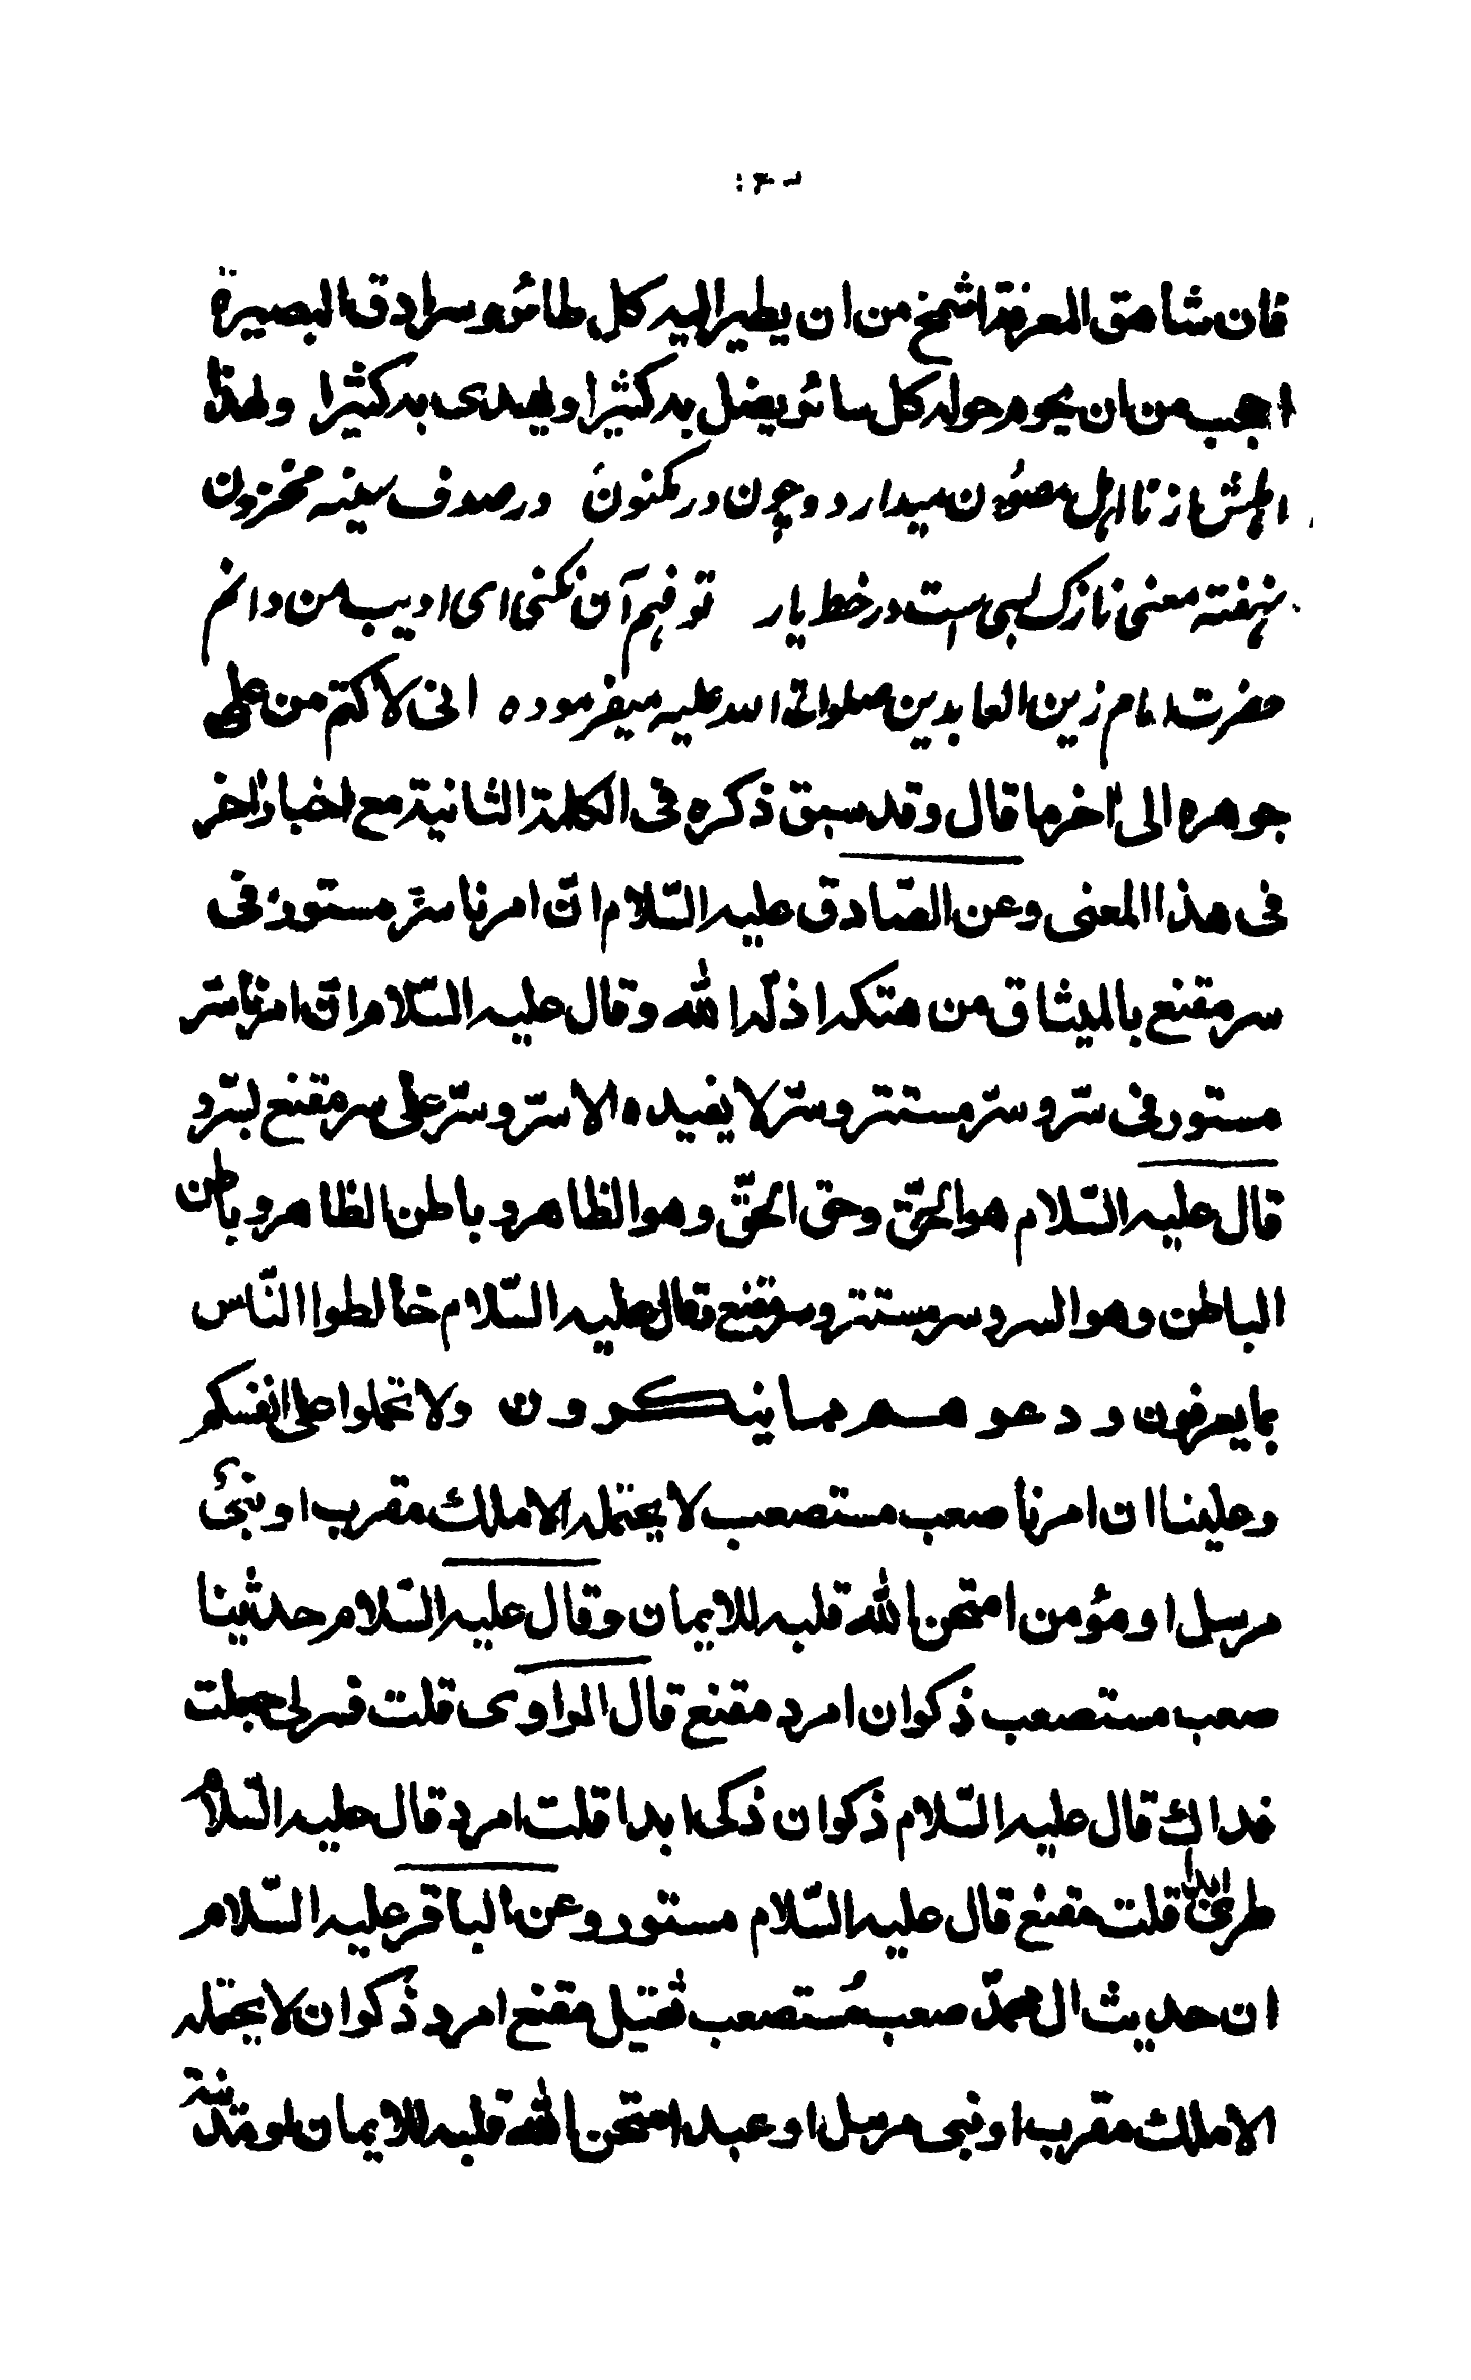 فان شاهق المعرفة اشمخ من ان يطير اليه كل طائر و سرادق البصيرة
احجب من ان يحوم حوله كل سائر يضل به كثيرا و يهدى به كثيرا ولهذا
اهلش از نااهل مصون ميدارد و چون در مكنون در صدف سينه مخزون
نهفته معنى نازك بسى است در خط يار تو فهم آن نكنى اى اديب من دانم
حضرت امام زين العابدين صلوات الله عليه ميفرموده انى لاكتم من علمى
جوهره الى اخر ما قال و قد سبق ذكره فى الكلمة الثانية مع اخبار اخر
فى هذا المعنى و عن الصّادق عليه السّلام انّ امرنا سرّ مستور فى
سر مقنع بالميثاق من هتكه اذلّه الله و قال عليه السّلام انّ امرنا سّر
مستور فى سّر و سّر مستتر و سّر لا يفيده الا سّر و سّر على سر مقنع بسّر و
قال عليه السّلام هو الحقّ و حق الحقّ و هو الظاهر و باطن الظاهر و باطن
الباطن و هو السر و سر مستتر و سر مقنع و قال عليه السّلام خالطوا النّاس
بما يعرفون و دعوهم مما ينكرون ولا تحملوا على انفسكم
و علينا ان امرنا صعب مستصعب لا يحتمله الا ملك مقرب او نبىّ
مرسل او مؤمن امتحن الله قلبه للايمان و قال عليه السّلام حديثنا
صعب مستصعب ذكوان امرد مقنع قال الراوى قلت فسر لى جعلت
فداك قال عليه السّلام ذكوان ذكى ابدا قلت امرد قال عليه السّلام
طرى ابدا قلت مقنع قال عليه السّلام مستور و عن الباقر عليه السّلام
ان حديث ال محمدّ صعب مُستصعب ثقيل مقنع امرد ذكوان لا يحتمله
الا ملك مقرب او نبى مرسل او عبد امتحن الله قلبه للايمان او مدينة